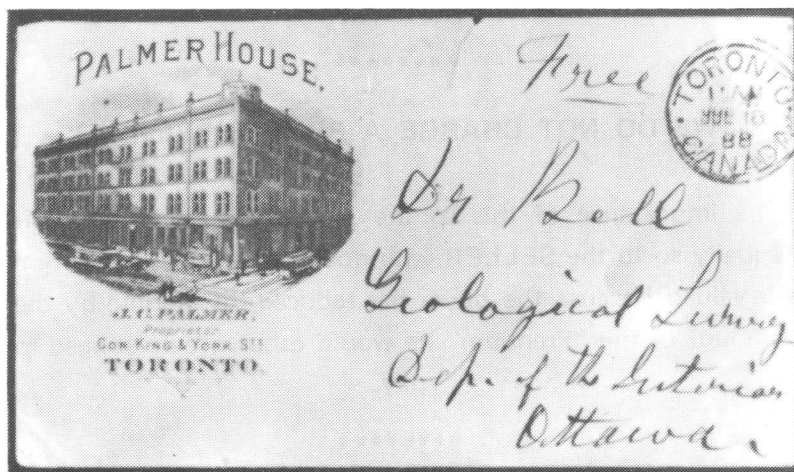 PALMER HOUSE.
J.C. PALMER,
Proprietor
COR. KING & YORK STS.
TORONTO.
Free
TORONTO
88
CANADA
Dr Bell
Geological Survey
Dep. of the Interior
Ottawa.